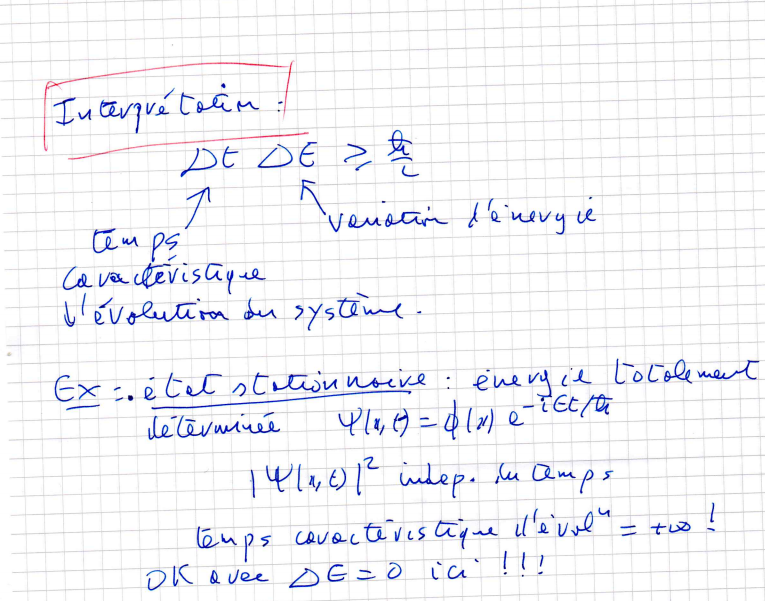 Interprétation :
Δt ΔE ≥ ħ/2
variation d'énergie
temps
caractéristique
d'évolution du système.
Ex : • état stationnaire : énergie totalement
déterminée Ψ(x,t) = ϕ(x) e^{-iEt/ħ}
|Ψ(x,t)|² indep. du temps
temps caractéristique d'évolⁿ = +∞ !
OK avec ΔE = 0 ici !!!